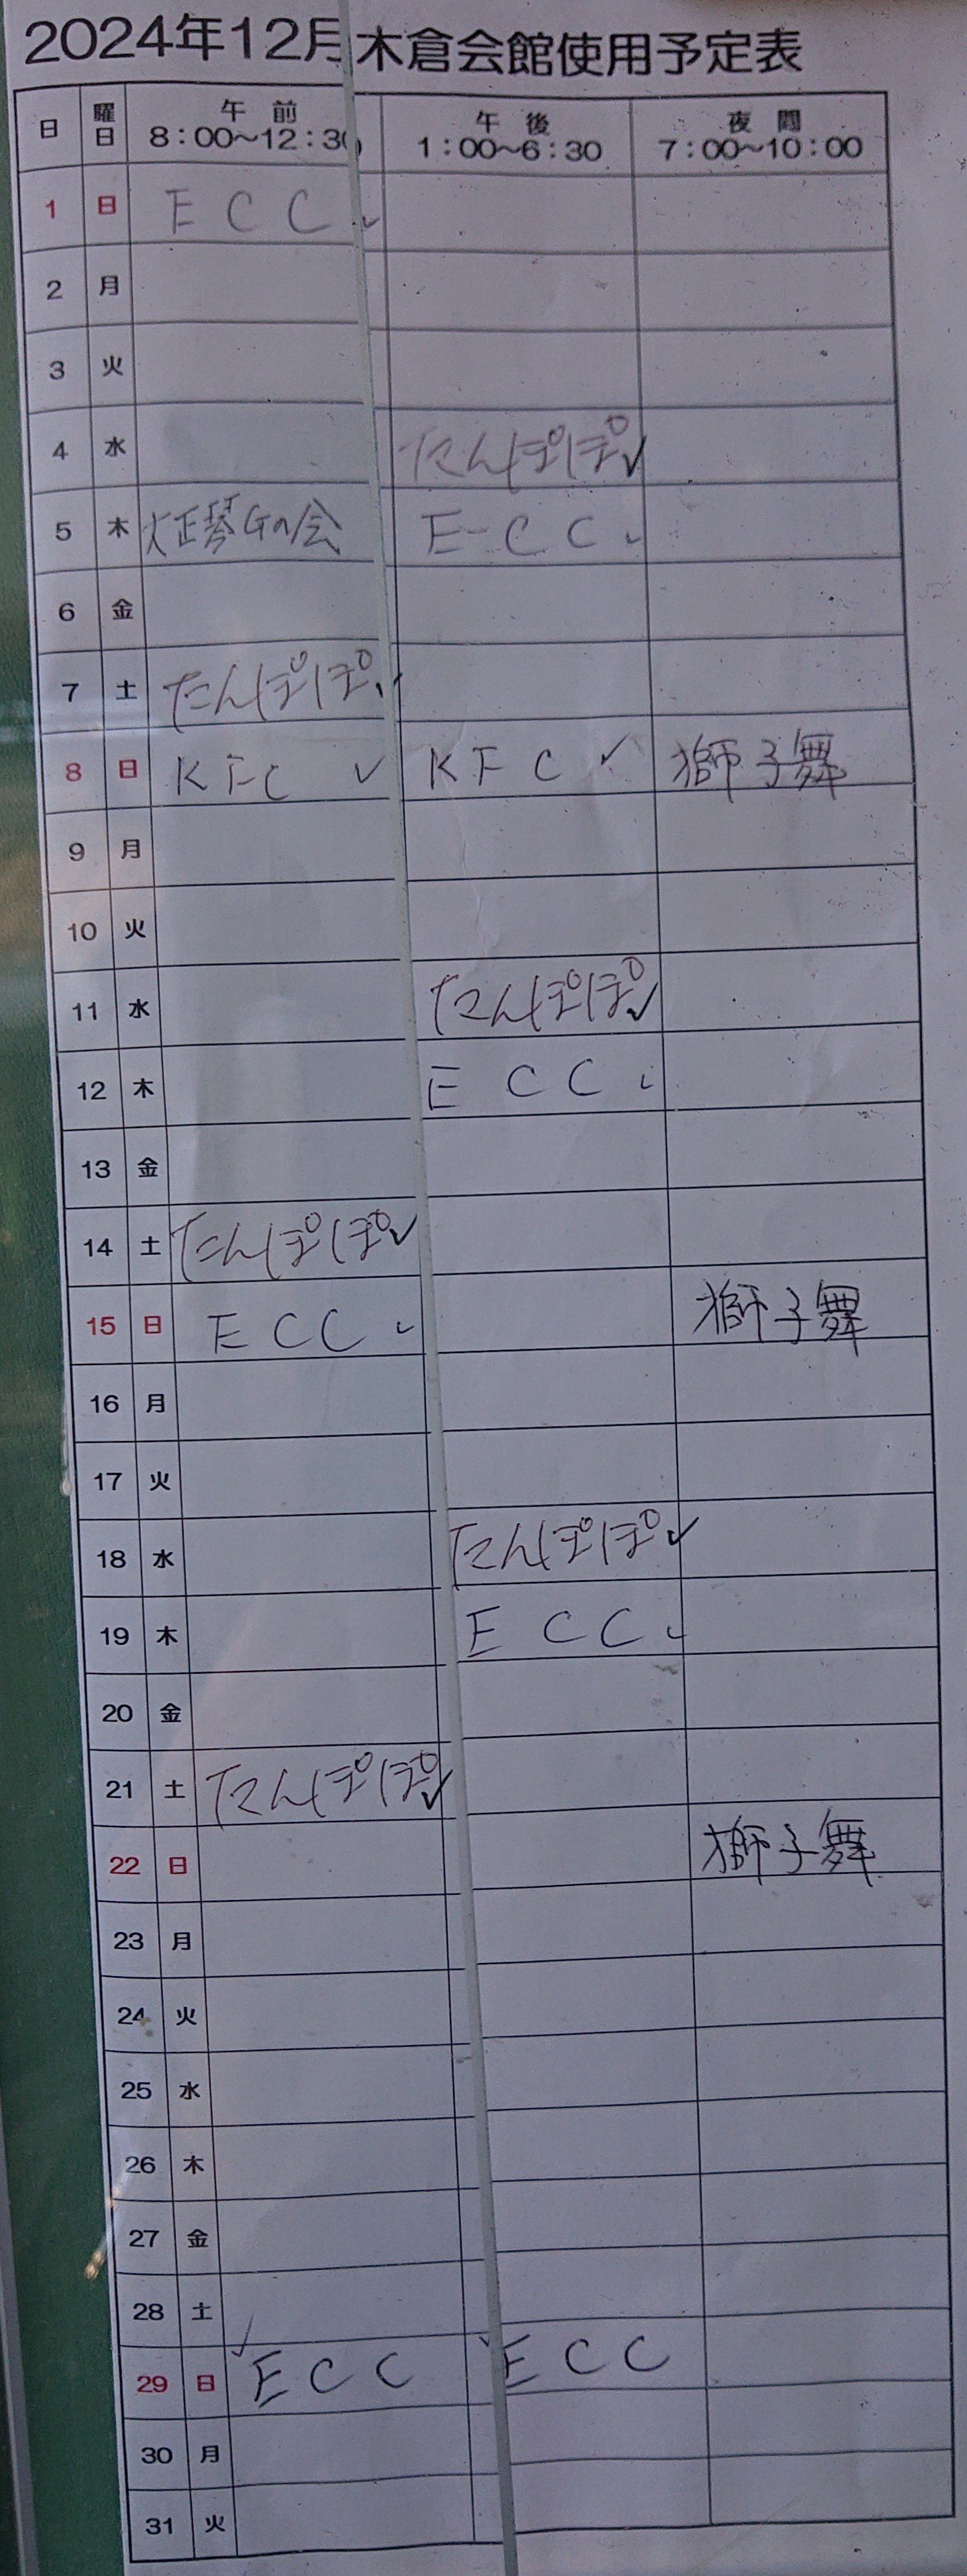 2024年12月木倉会館使用予定表
日 曜日 午前 8:00~12:30 午後 1:00~6:30 夜間 7:00~10:00
1 日 ECC ✓
2 月
3 火
4 水 たんぽぽ ✓
5 木 大正琴Gの会 ECC ✓
6 金
7 土 たんぽぽ ✓
8 日 KFC ✓ KFC ✓ 獅子舞
9 月
10 火
11 水 たんぽぽ ✓
12 木 ECC ✓
13 金
14 土 たんぽぽ ✓
15 日 ECC ✓ 獅子舞
16 月
17 火
18 水 たんぽぽ ✓
19 木 ECC ✓
20 金
21 土 たんぽぽ ✓
22 日 獅子舞
23 月
24 火
25 水
26 木
27 金
28 土
29 日 ✓ ECC ✓ ECC
30 月
31 火